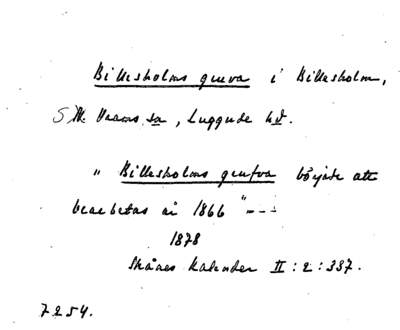 Billesholms gruva i Billesholm,
N. Vrams sn, Luggude hd.
"Billesholms grufva började att
bearbetas år 1866" ---
1878
Skånes Kalender II:2:337.
7254.